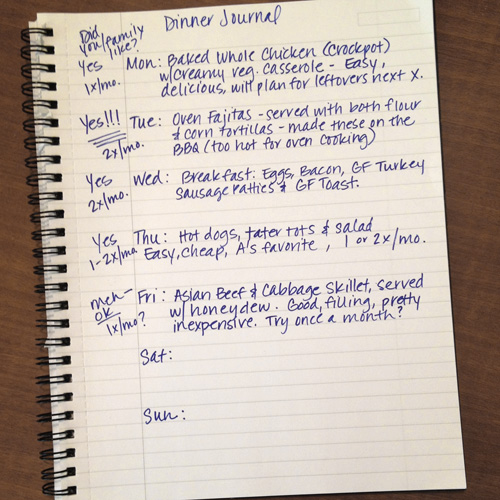 Dinner Journal
Did
you/family
like?
Yes
1x/mo.
Mon: Baked Whole Chicken (Crockpot)
w/creamy veg. casserole - Easy,
delicious, will plan for leftovers next x.
Yes!!!
2x/mo.
Tue: Oven Fajitas - served with both flour
& corn tortillas - made these on the
BBQ (too hot for oven cooking)
Yes
2x/mo.
Wed: Breakfast: Eggs, Bacon, GF Turkey
Sausage Patties & GF Toast.
Yes
1-2x/mo
Thu: Hot dogs, tater tots & salad
Easy, cheap, A's favorite, 1 or 2x/mo.
meh-
OK
1x/mo?
Fri: Asian Beef & Cabbage Skillet, served
w/ honeydew. Good, filling, pretty
inexpensive. Try once a month?
Sat:
Sun: